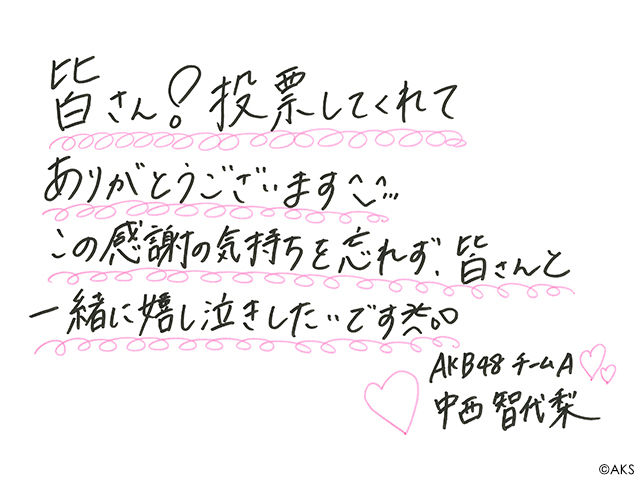 皆さん!投票してくれて
ありがとうございます
この感謝の気持ちを忘れず、皆さんと
一緒に嬉し泣きしたいです
AKB48 チームA
中西智代梨
©AKS